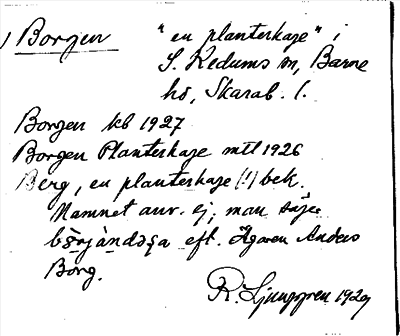 ) Borgen "en planterkaje" i
S. Kedums sn, Barne
hd, Skarab. l.
Borgen kb 1927
Borgen Planterkaje mtl 1926
Berg, en planterkaje (!) bek.
Namnet anv. ej, man säjer
eft. Ägaren Anders
Borg.
R. Ljunggren 1929